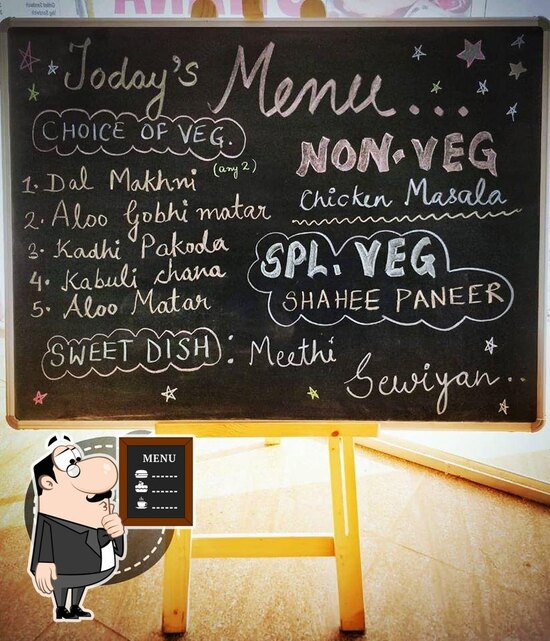 Today's Menu...
CHOICE OF VEG.
(any 2)
1. Dal Makhni
2. Aloo Gobhi matar
3. Kadhi Pakoda
4. Kabuli chana
5. Aloo Matar
NON-VEG
Chicken Masala
SPL. VEG
SHAHEE PANEER
SWEET DISH: Meethi Sewiyan..
MENU